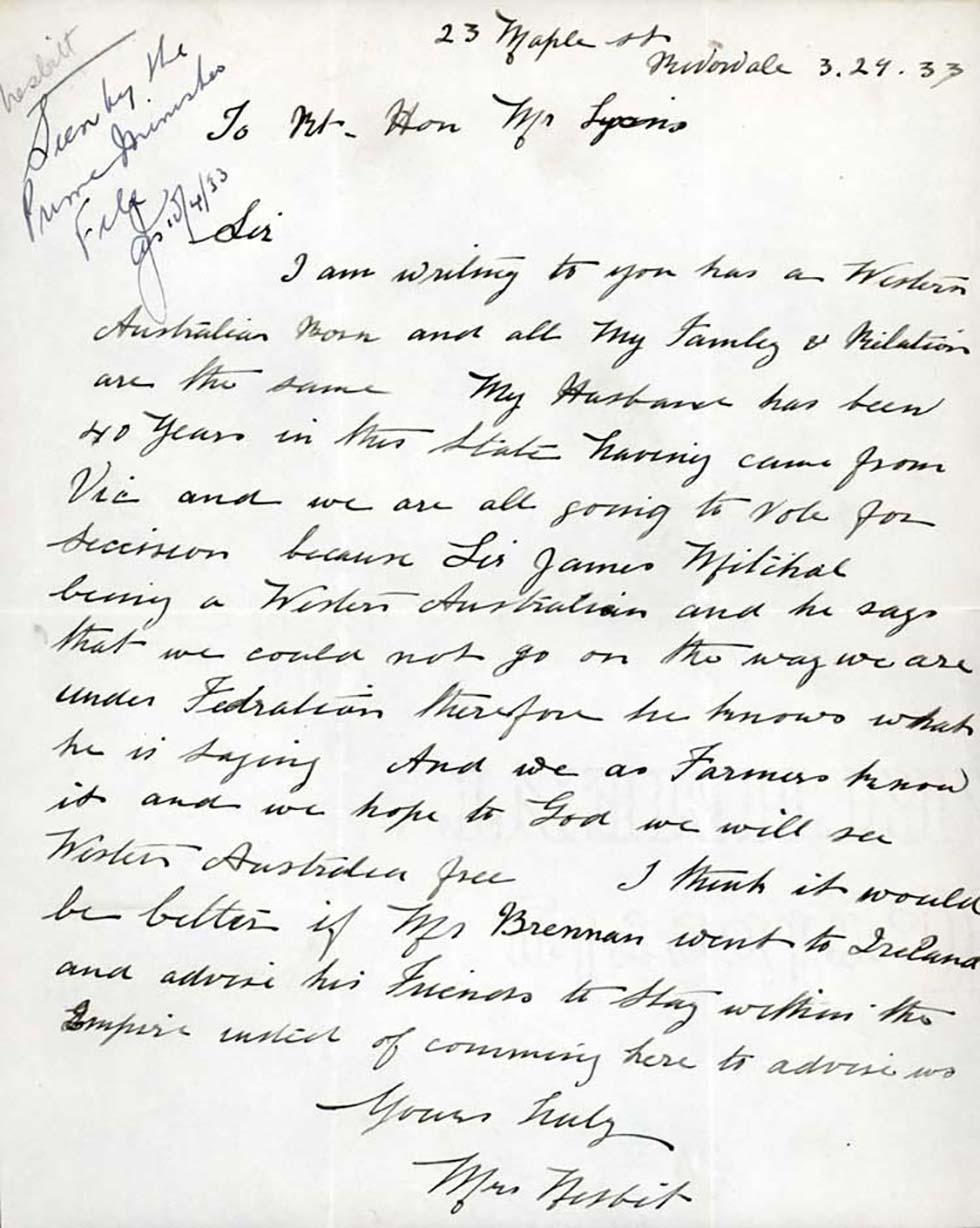 Nesbitt
Seen by the
Prime Minister
File
13/4/33
23 Maple st
3.29.33
To Rt. Hon Mr Lyons
Sir
I am writing to you has a Western
Australian Born and all My Famley & Relation
are the same My Husband has been
40 Years in this State having came from
Vic and we are all going to vote for
seccision because Sir James Mitchal
being a Western Australian and he says
that we could not go on the way we are
under Fedration therefore he knows what
he is saying And we as Farmers know
it and we hope to God we will see
Western Australia free I think it would
be better if Mr Brennan went to Ireland
and advise his Friends to stay within the
Empire insted of comming here to advise us
Yours Truly
Mrs Nesbit